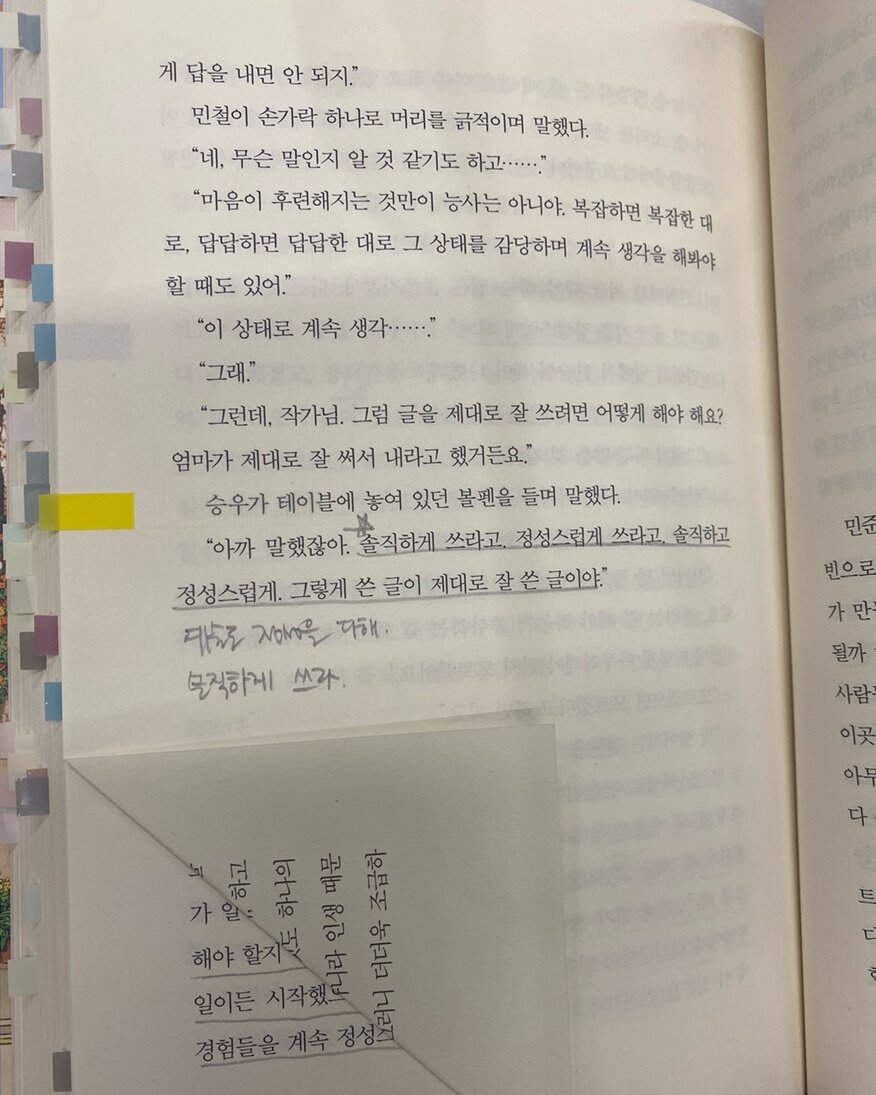 게 답을 내면 안 되지.”
민철이 손가락 하나로 머리를 긁적이며 말했다.
“네, 무슨 말인지 알 것 같기도 하고…….”
“마음이 후련해지는 것만이 능사는 아니야. 복잡하면 복잡한 대
로, 답답하면 답답한 대로 그 상태를 감당하며 계속 생각을 해봐야
할 때도 있어.”
“이 상태로 계속 생각…….”
“그래.”
“그런데, 작가님. 그럼 글을 제대로 잘 쓰려면 어떻게 해야 해요?
엄마가 제대로 잘 써서 내라고 했거든요.”
승우가 테이블에 놓여 있던 볼펜을 들며 말했다.
“아까 말했잖아. 솔직하게 쓰라고. 정성스럽게 쓰라고. 솔직하고
정성스럽게. 그렇게 쓴 글이 제대로 잘 쓴 글이야.”
다해.
쓰라.
가 일
해야 할지
일이든 시작했
경험들을 계속 정성
하고
도 하나의
나라 인생 때문
러니 더더욱 조급하
민준
빈으로
가 만
될까
사람
이곳
아무
다
트